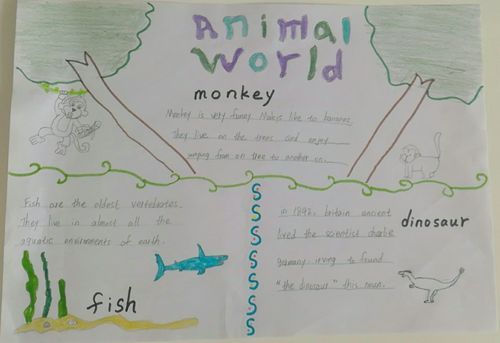 Animal
World
monkey
Monkey is very funny. Makeis like to bananas.
They live on the trees and enjoy
umping from on tree to another on.
Fish are the oldest vertebrates.
They live in almost all the
aquatic environments of earth.
fish
in 1892, britain ancient
lived the scientist charlie
germany irving to found
"the dinosaur" this noun.
dinosaur